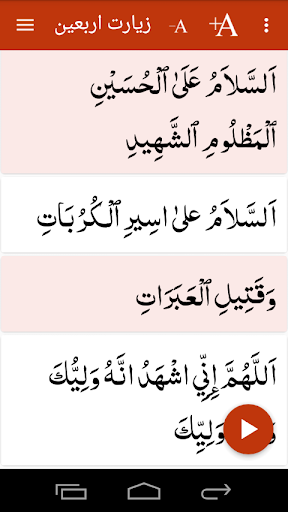 زيارت اربعين
-A
+A
اَلسَّلاَمُ عَلَىٰ ٱلْحُسَيْنِ
ٱلْمَظْلُومِ ٱلشَّهِيدِ
اَلسَّلاَمُ عَلىٰ اسِيرِ ٱلْكُرُبَاتِ
وَقَتِيلِ ٱلْعَبَرَاتِ
اَللَّهُمَّ إِنِّي اشْهَدُ انَّهُ وَلِيُّكَ
وَلِيِّكَ